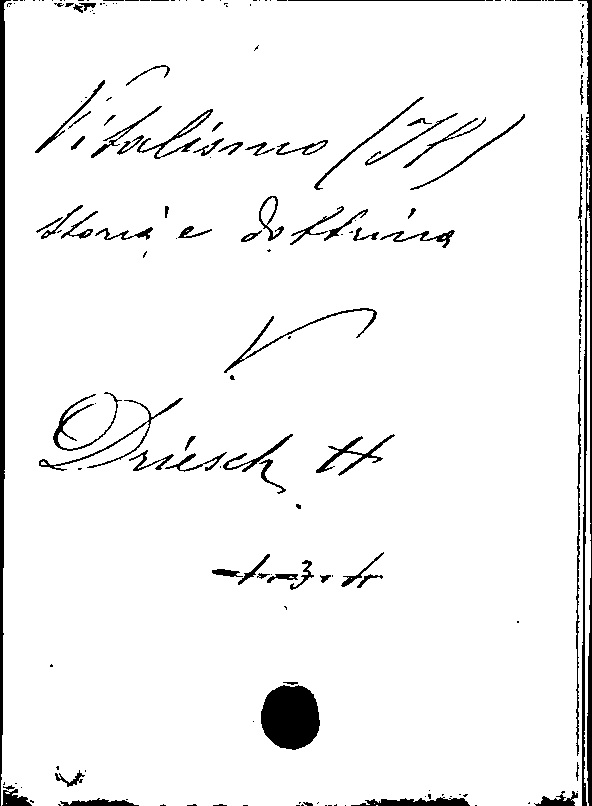 Vitalismo (Il)
storia e dottrina
V.
Driesch H.